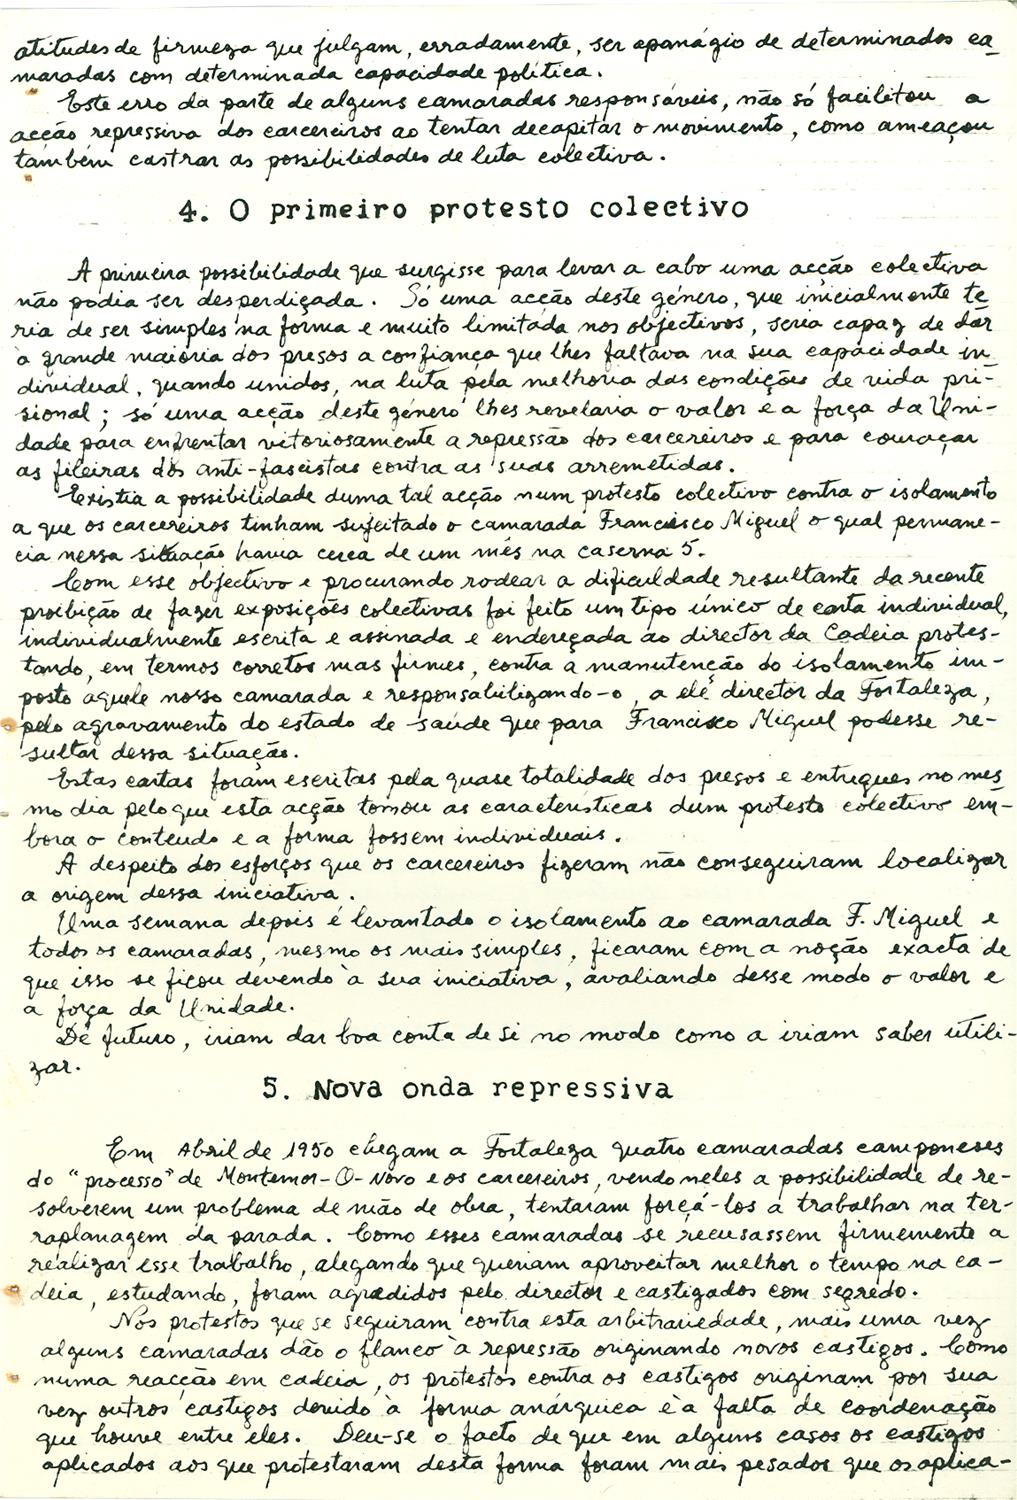 atitudes de firmeza que julgam, erradamente, ser apanágio de determinados ca-
maradas com determinada capacidade política.
Este erro da parte de alguns camaradas responsáveis, não só facilitou a
acção repressiva dos carcereiros ao tentar decapitar o movimento, como ameaçou
também castrar as possibilidades de luta colectiva.
4. O primeiro protesto colectivo
A primeira possibilidade que surgisse para levar a cabo uma acção colectiva
não podia ser desperdiçada. Só uma acção deste género, que inicialmente te
ria de ser simples na forma e muito limitada nos objectivos, seria capaz de dar
à grande maioria dos presos a confiança que lhes faltava na sua capacidade in
dividual, quando unidos, na luta pela melhoria das condições de vida pri-
sional; só uma acção deste género lhes revelaria o valor e a força da Uni-
dade para enfrentar vitoriosamente a repressão dos carcereiros e para couraçar
as fileiras dos anti-fascistas contra as suas arremetidas.
Existia a possibilidade duma tal acção num protesto colectivo contra o isolamento
a que os carcereiros tinham sujeitado o camarada Francisco Miguel o qual permane-
cia nessa situação havia cerca de um mês na caserna 5.
Com esse objectivo e procurando rodear a dificuldade resultante da recente
proibição de fazer exposições colectivas foi feito um tipo único de carta individual,
individualmente escrita e assinada e endereçada ao director da Cadeia protes-
tando, em termos corretos mas firmes, contra a manutenção do isolamento im-
posto àquele nosso camarada e responsabilizando-o, a ele director da Fortaleza,
pelo agravamento do estado de saúde que para Francisco Miguel podesse re-
sultar dessa situação.
Estas cartas foram escritas pela quase totalidade dos presos e entregues no mes
mo dia pelo que esta acção tomou as características dum protesto colectivo em-
bora o conteudo e a forma fossem individuais.
A despeito dos esforços que os carcereiros fizeram não conseguiram localizar
a origem dessa iniciativa.
Uma semana depois é levantado o isolamento ao camarada F. Miguel e
todos os camaradas, mesmo os mais simples, ficaram com a noção exacta de
que isso se ficou devendo à sua iniciativa, avaliando desse modo o valor e
a força da Unidade.
De futuro, iriam dar boa conta de si no modo como a iriam saber utili-
zar.
5. Nova onda repressiva
Em Abril de 1950 chegam a Fortaleza quatro camaradas camponeses
do "processo" de Montemor-O-Novo e os carcereiros, vendo neles a possibilidade de re-
solverem um problema de mão de obra, tentaram forçá-los a trabalhar na ter-
raplanagem da parada. Como esses camaradas se recusassem firmemente a
realizar esse trabalho, alegando que queriam aproveitar melhor o tempo na ca-
deia, estudando, foram agredidos pelo director e castigados com segredo.
Nos protestos que se seguiram contra esta arbitrariedade, mais uma vez
alguns camaradas dão o flanco à repressão originando novos castigos. Como
numa reacção em cadeia, os protestos contra os castigos originam por sua
vez outros castigos devido à forma anárquica e à falta de coordenação
que houve entre eles. Deu-se o facto de que em alguns casos os castigos
aplicados aos que protestaram desta forma foram mais pesados que os aplica-